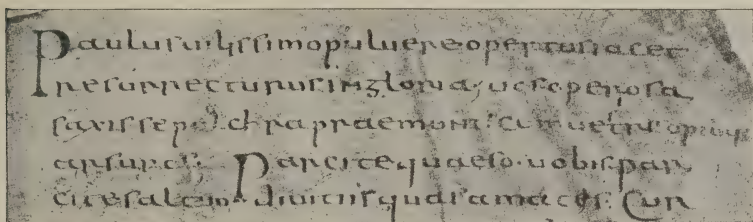 Paulus uilissimo puluere opertus iacet
resurrecturus in gloria; uos operosa
saxis sepulchra praemunt. cum uestris opibus
arsuros. Parcite quaeso. uobis par
cite saltem. diuitiis quas amatis. Cur